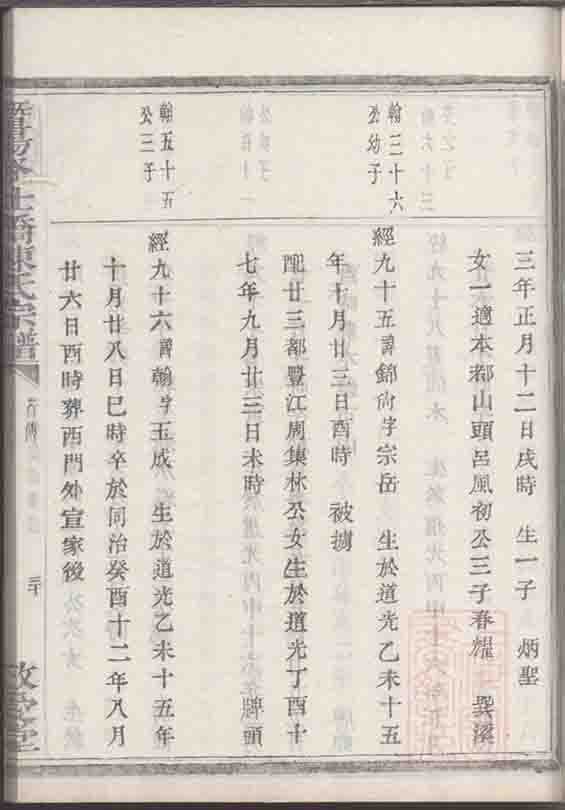 三年正月十二日戌時 生一子 炳聖
女一適本都山頭呂風初公三子春耀
翰三十六
公幼子
經九十五諱錦尚字宗岳 生於道光乙未十五
年十月廿三日酉時 被擄
配廿三都豐江周集林公女生於道光丁酉十
七年九月廿三日未時
翰五十五
公三子
經九十六諱翰字玉成 生於道光乙未十五年
十月廿八日巳時卒於同治癸酉十二年八月
廿六日酉時葬西門外宣家後
橋陳氏宗譜